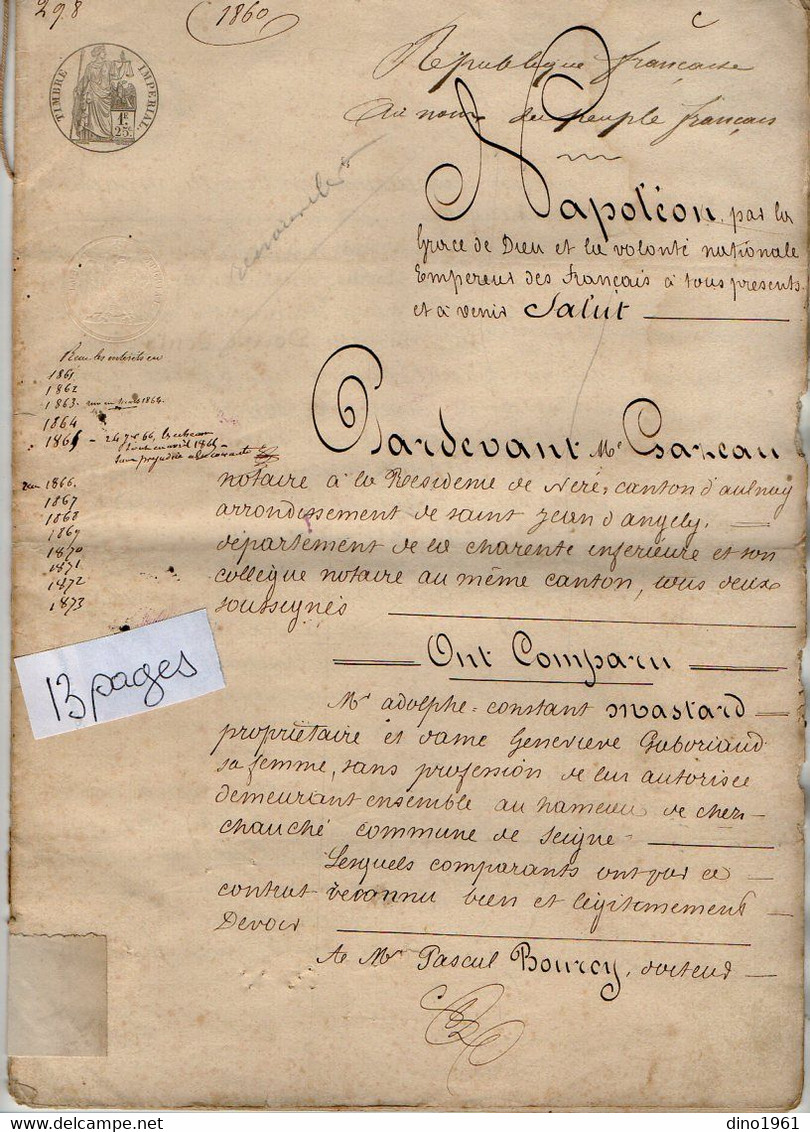 298
1860
C
TIMBRE IMPERIAL
1F.
25C.
République française
Au nom du Peuple français
Napoléon, par la
Grace de Dieu et la volonté nationale
Empereur des français à tous présents
et à venir Salut
Reçu les intérêts en
1861
1862
1863
1864
1865
1866.
1867
1868
1869
1870
1871
1872
1873
Pardevant Me
notaire à la Résidence de Néré, canton d'aulnay
arrondissement de saint jean d'angely,
département de la charente inférieure et son
collègue notaire au même canton, tous deux
soussignés
13 pages
Ont Comparu
Mr adolphe-constant Mastard
propriétaire et dame Geneviève Gaboriaud
sa femme, sans profession de lui autorisée
demeurant ensemble au hameau de cher-
chauché commune de Seigné
Lesquels comparants ont par ce
contrat reconnu bien et légitimement
Devoir
A Mr Pascal Bourcy, docteur
dino1961